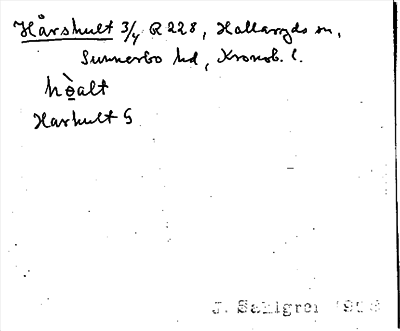 Hårshult 3/4 R 228, Hallaryds sn,
Sunnerbo hd, Kronob. l.
hò̤alt
Harhult G
J. Sahlgren